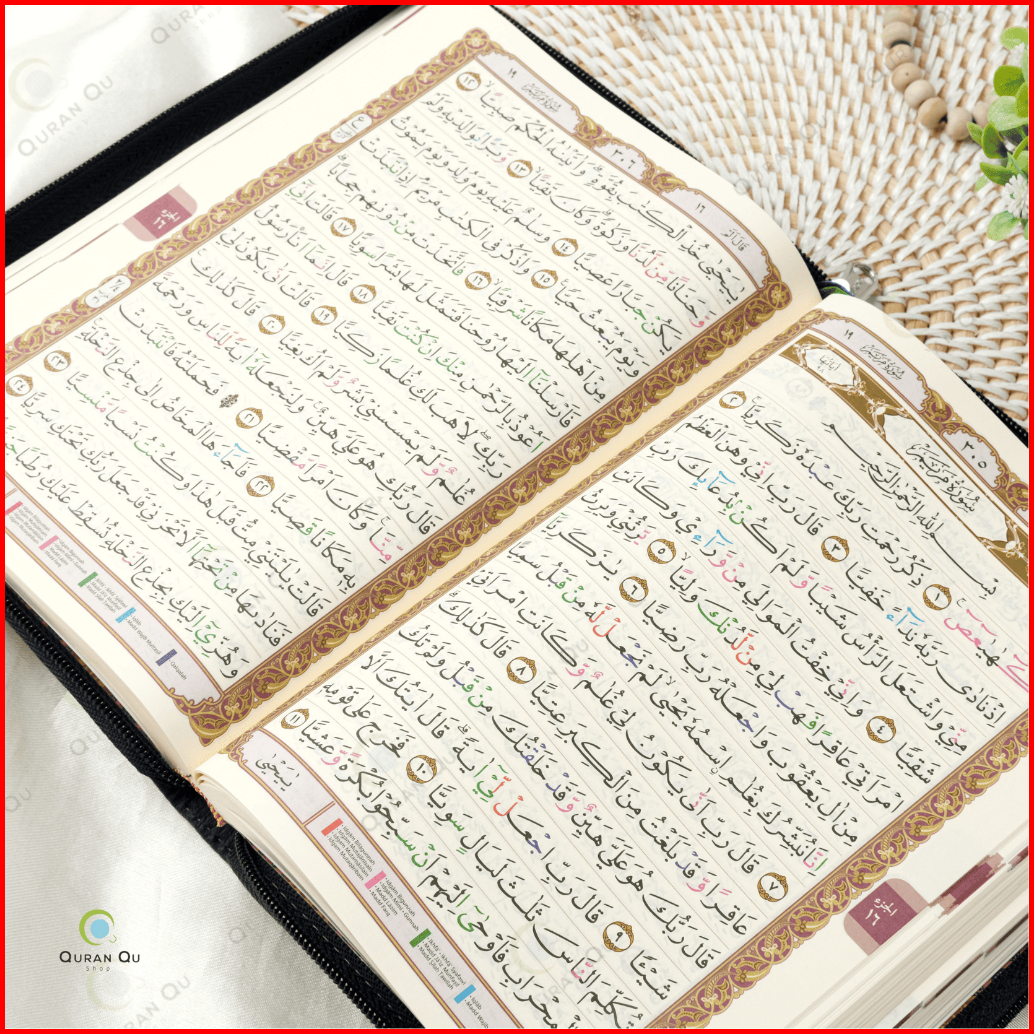 سُوْرَةُ مَرْيَمَ ١٩
٣٠٥
سُوْرَةُ مَرْيَمَ
بِسْمِ اللّٰهِ الرَّحْمٰنِ الرَّحِيْمِ
كۤهٰيٰعۤصۤ ۚ ١ ذِكْرُ رَحْمَتِ رَبِّكَ عَبْدَهٗ زَكَرِيَّا ۚ ٢
اِذْ نَادٰى رَبَّهٗ نِدَاۤءً خَفِيًّا ٣ قَالَ رَبِّ اِنِّيْ وَهَنَ الْعَظْمُ
مِنِّيْ وَاشْتَعَلَ الرَّأْسُ شَيْبًا وَّلَمْ اَكُنْۢ بِدُعَاۤىِٕكَ رَبِّ
شَقِيًّا ٤ وَاِنِّيْ خِفْتُ الْمَوَالِيَ مِنْ وَّرَاۤءِيْ وَكَانَتِ
امْرَاَتِيْ عَاقِرًا فَهَبْ لِيْ مِنْ لَّدُنْكَ وَلِيًّا ۙ ٥ يَّرِثُنِيْ وَيَرِثُ
مِنْ اٰلِ يَعْقُوْبَ وَاجْعَلْهُ رَبِّ رَضِيًّا ٦ يٰزَكَرِيَّآ
اِنَّا نُبَشِّرُكَ بِغُلٰمِ ِۨاسْمُهٗ يَحْيٰىۙ لَمْ نَجْعَلْ لَّهٗ مِنْ قَبْلُ سَمِيًّا
٧ قَالَ رَبِّ اَنّٰى يَكُوْنُ لِيْ غُلٰمٌ وَّكَانَتِ امْرَاَتِيْ
عَاقِرًا وَّقَدْ بَلَغْتُ مِنَ الْكِبَرِ عِتِيًّا ٨ قَالَ كَذٰلِكَۚ
قَالَ رَبُّكَ هُوَ عَلَيَّ هَيِّنٌ وَّقَدْ خَلَقْتُكَ مِنْ قَبْلُ وَلَمْ تَكُ
شَيْـًٔا ٩ قَالَ رَبِّ اجْعَلْ لِّيْٓ اٰيَةً ۗقَالَ اٰيَتُكَ اَلَّا
تُكَلِّمَ النَّاسَ ثَلٰثَ لَيَالٍ سَوِيًّا ١٠ فَخَرَجَ عَلٰى قَوْمِهٖ
مِنَ الْمِحْرَابِ فَاَوْحٰٓى اِلَيْهِمْ اَنْ سَبِّحُوْا بُكْرَةً وَّعَشِيًّا ١١
يٰيَحْيٰى
الجزء ١٦
قَالَ اَلَمْ ١٦
٣٠٦
سُوْرَةُ مَرْيَمَ ١٩
يٰيَحْيٰى خُذِ الْكِتٰبَ بِقُوَّةٍ ۗوَاٰتَيْنٰهُ الْحُكْمَ صَبِيًّاۙ ١٢
وَّحَنَانًا مِّنْ لَّدُنَّا وَزَكٰوةً ۗوَكَانَ تَقِيًّاۙ ١٣ وَّبَرًّاۢ بِوَالِدَيْهِ وَلَمْ
يَكُنْ جَبَّارًا عَصِيًّا ١٤ وَسَلٰمٌ عَلَيْهِ يَوْمَ وُلِدَ وَيَوْمَ يَمُوْتُ
وَيَوْمَ يُبْعَثُ حَيًّا ١٥ وَاذْكُرْ فِى الْكِتٰبِ مَرْيَمَۘ اِذِ انْتَبَذَتْ
مِنْ اَهْلِهَا مَكَانًا شَرْقِيًّاۙ ١٦ فَاتَّخَذَتْ مِنْ دُوْنِهِمْ حِجَابًاۗ
فَاَرْسَلْنَآ اِلَيْهَا رُوْحَنَا فَتَمَثَّلَ لَهَا بَشَرًا سَوِيًّا ١٧ قَالَتْ اِنِّيْٓ
اَعُوْذُ بِالرَّحْمٰنِ مِنْكَ اِنْ كُنْتَ تَقِيًّا ١٨ قَالَ اِنَّمَآ اَنَا۠ رَسُوْلُ
رَبِّكِۖ لِاَهَبَ لَكِ غُلٰمًا زَكِيًّا ١٩ قَالَتْ اَنّٰى يَكُوْنُ لِيْ
غُلٰمٌ وَّلَمْ يَمْسَسْنِيْ بَشَرٌ وَّلَمْ اَكُ بَغِيًّا ٢٠ قَالَ كَذٰلِكِۚ
قَالَ رَبُّكِ هُوَ عَلَيَّ هَيِّنٌۚ وَلِنَجْعَلَهٗٓ اٰيَةً لِّلنَّاسِ وَرَحْمَةً
مِّنَّاۚ وَكَانَ اَمْرًا مَّقْضِيًّا ٢١ فَحَمَلَتْهُ فَانْتَبَذَتْ
بِهٖ مَكَانًا قَصِيًّا ٢٢ فَاَجَاۤءَهَا الْمَخَاضُ اِلٰى جِذْعِ النَّخْلَةِۚ
قَالَتْ يٰلَيْتَنِيْ مِتُّ قَبْلَ هٰذَا وَكُنْتُ نَسْيًا مَّنْسِيًّا ٢٣
فَنَادٰىهَا مِنْ تَحْتِهَآ اَلَّا تَحْزَنِيْ قَدْ جَعَلَ رَبُّكِ تَحْتَكِ سَرِيًّا ٢٤
وَهُزِّيْٓ اِلَيْكِ بِجِذْعِ النَّخْلَةِ تُسٰقِطْ عَلَيْكِ رُطَبًا
الجزء ١٦
QURAN QU
Shop